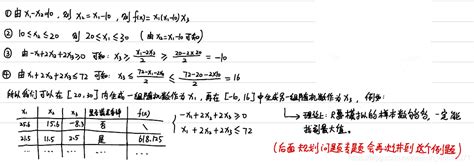 ① 由 X₁-X₂=10, 则 X₂=X₁-10, 则 f(x)=X₁(X₁-10)X₃
② 10≤X₂≤20 则 20≤X₁≤30 (由 X₂=X₁-10 可知)
③ 由 -X₁+2X₂+2X₃≥0 可知: X₃ ≥ (X₁-2X₂)/2 ≥ (20-2×20)/2 = -10
④ 由 X₁+2X₂+2X₃≤72 可知: X₃ ≤ (72-X₁-2X₂)/2 ≤ (72-20-2×10)/2 = 16
所以我们可以在 [20,30] 内生成一组随机数作为 X₁, 再在 [-10,16] 中生成另一组随机数作为 X₃, 例如:
X₁ X₂ X₃ 是否满足条件 f(x)
25.6 15.6 -8.3 否 \
21.5 11.5 2.5 是 618.125
... ... ...
-X₁+2X₂+2X₃≥0
X₁+2X₂+2X₃≤72
→ 理论上: 只要模拟的样本数够多, 一定能
找到最大值。
(后面规划问题专题会再次讲到这个例题)